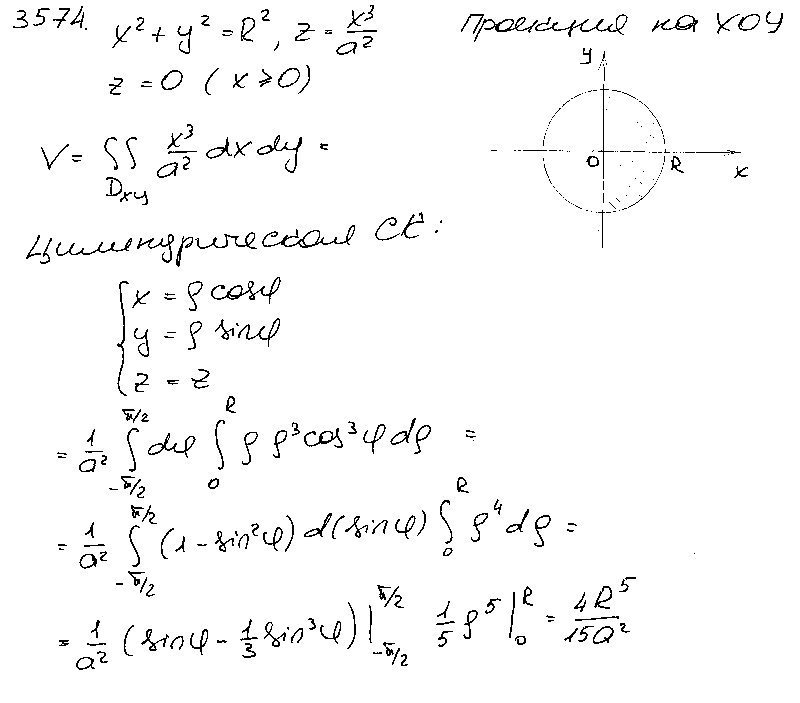 3574. x² + y² = R², z = x³/a²
z = 0 (x ⩾ 0)
Проекция на XOY
y
O
R
x
V = ∬_{Dxy} x³/a² dx dy =
Цилиндрическая СК:
{ x = ρ cosφ
y = ρ sinφ
z = z
= 1/a² ∫_{-π/2}^{π/2} dφ ∫_0^R ρ ρ³ cos³φ dρ =
= 1/a² ∫_{-π/2}^{π/2} (1 - sin²φ) d(sinφ) ∫_0^R ρ⁴ dρ =
= 1/a² (sinφ - 1/3 sin³φ) |_{-π/2}^{π/2} 1/5 ρ⁵ |_0^R = 4R⁵/15a²